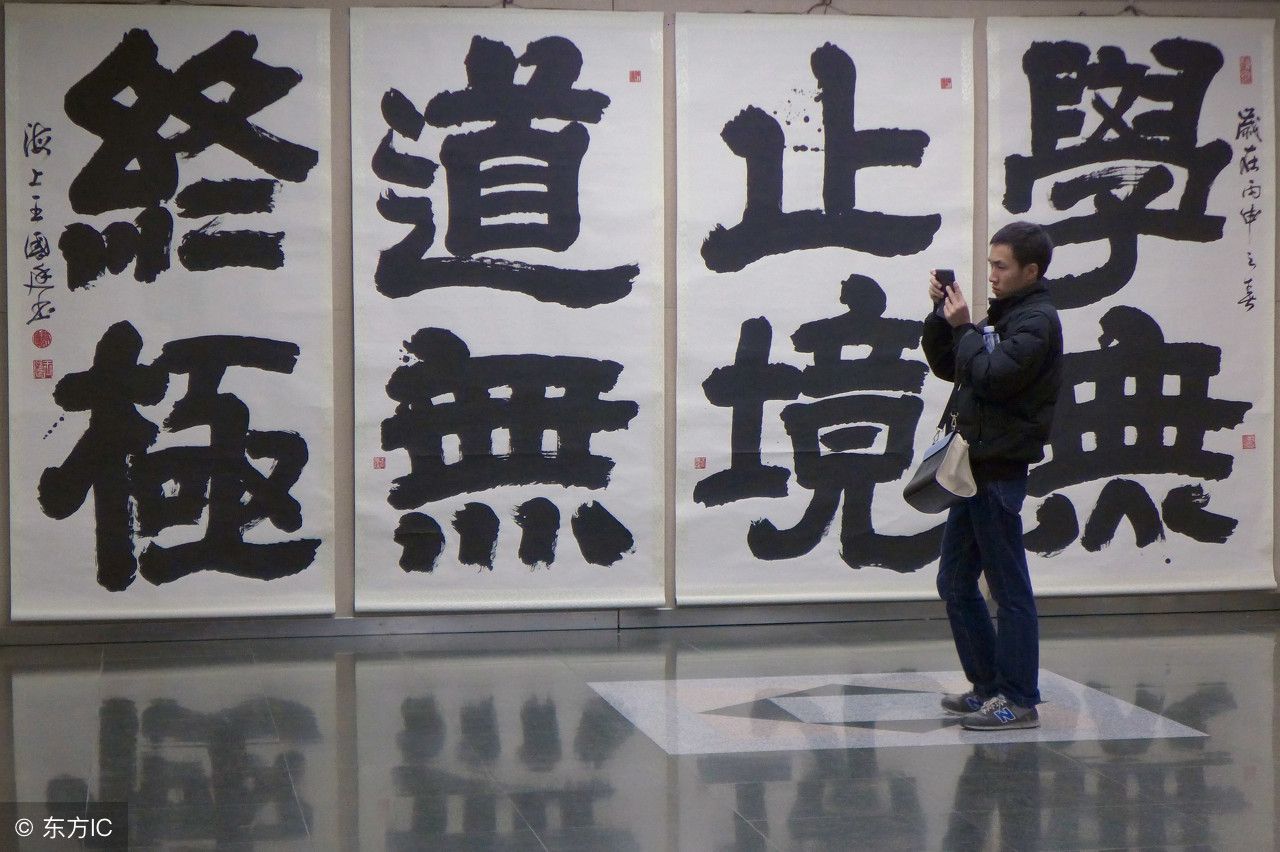 歲在丙申之喜
學無
止境
道無
終極
海上王國庭書
© 东方IC
N